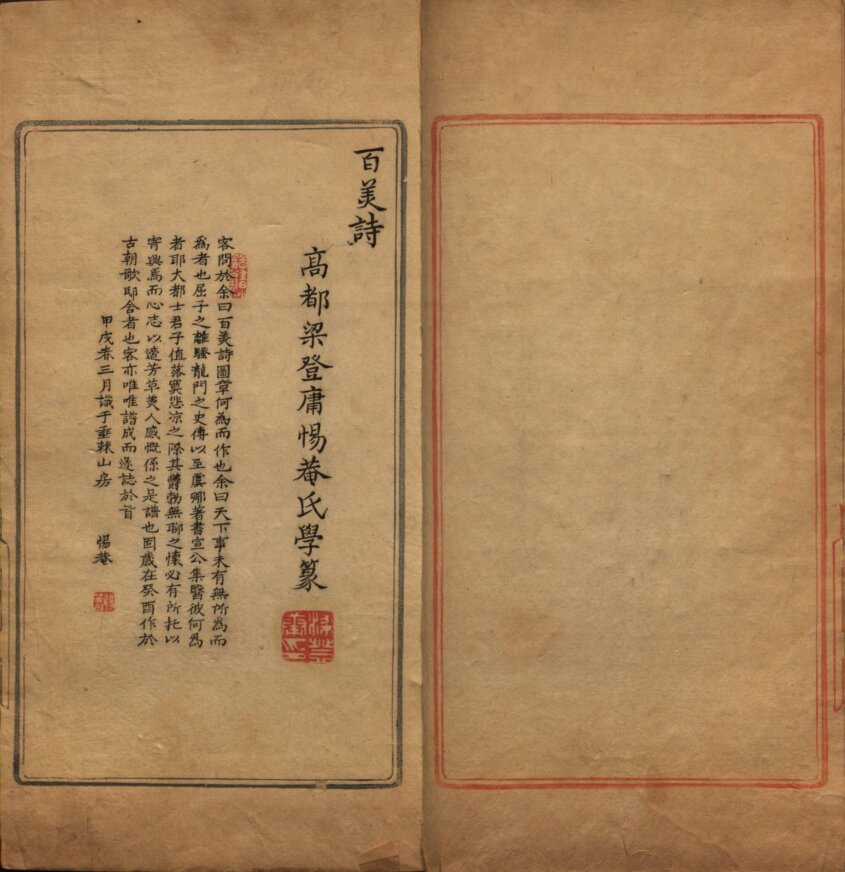 百美詩
高都梁登庸惕菴氏學篆
客問於余曰百美詩圖章何為而作也余曰天下事未有無所為而
為者也屈子之離騷龍門之史傳以至虞卿著書宣公集醫彼何為
者耶大都士君子值落寞悲凉之際其鬱勃無聊之懷必有所托以
寄興焉而心志以遠芳草美人感慨係之是譜也固歲在癸酉作於
古朝歌邸舍者也客亦唯唯譜成而遂誌於首
甲戌春三月識于垂棘山房
惕菴